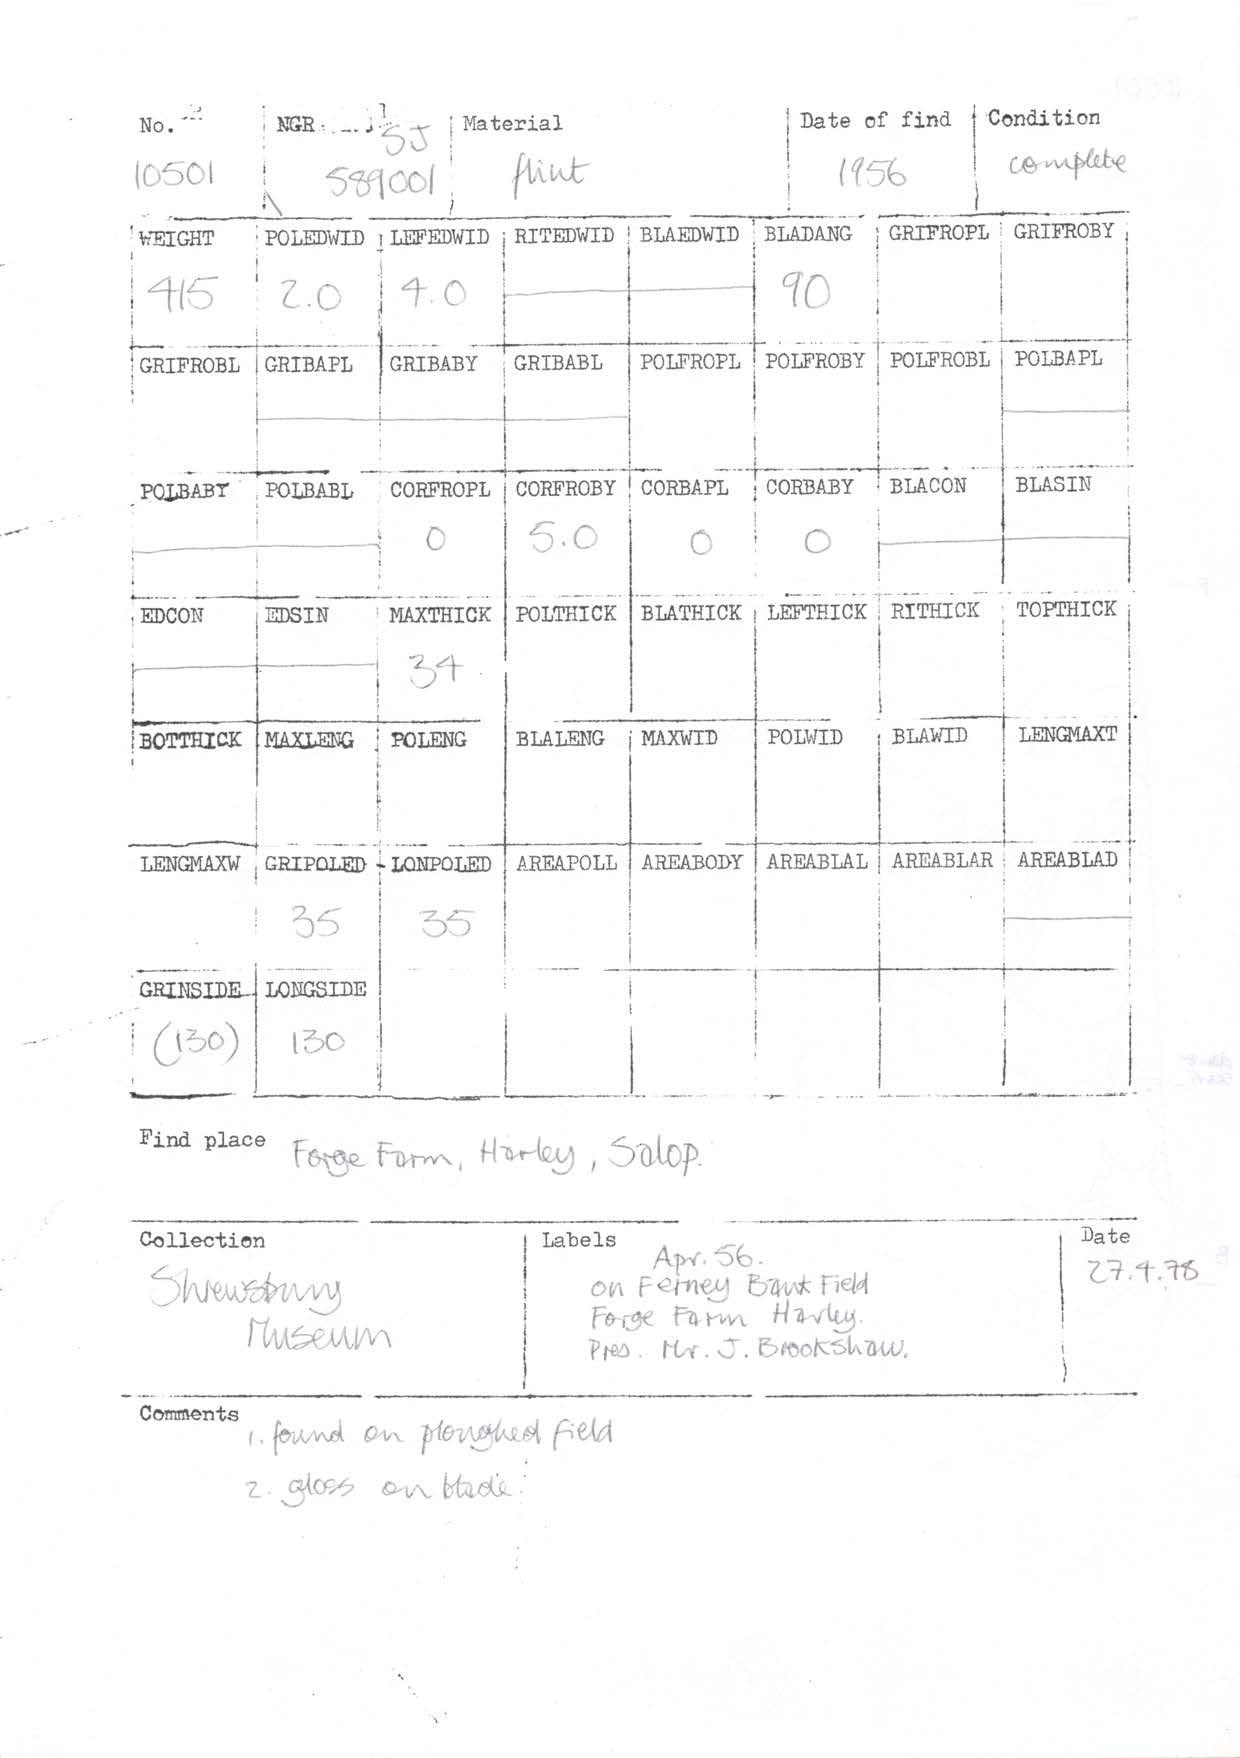 No. NGR Material Date of find Condition
10501 SJ 589001 flint 1956 complete
WEIGHT POLEDWID LEFEDWID RITEDWID BLAEDWID BLADANG GRIFROPL GRIFROBY
415 2.0 4.0 90
GRIFROBL GRIBAPL GRIBABY GRIBABL POLFROPL POLFROBY POLFROBL POLBAPL
POLBABY POLBABL CORFROPL CORFROBY CORBAPL CORBABY BLACON BLASIN
0 5.0 0 0
EDCON EDSIN MAXTHICK POLTHICK BLATHICK LEFTHICK RITHICK TOPTHICK
34
BOTTHICK MAXLENG POLENG BLALENG MAXWID POLWID BLAWID LENGMAXT
LENGMAXW GRIPOLED LONPOLED AREAPOLL AREABODY AREABLAL AREABLAR AREABLAD
35 35
GRINSIDE LONGSIDE
(130) 130
Find place Forge Farm, Harley, Salop.
Collection
Shrewsbury
Museum
Labels
Apr. 56.
on Ferney Bank Field
Forge Farm Harley.
Pres. Mr. J. Brookshaw.
Date
27.4.78
Comments
1. found on ploughed field
2. gloss on blade.